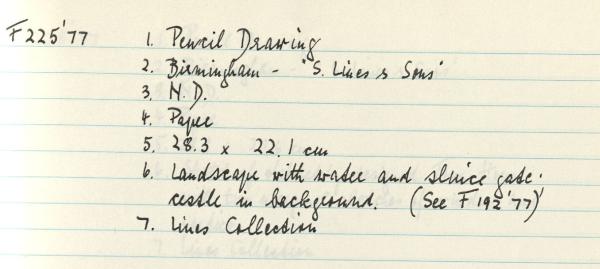 F225'77 1. Pencil Drawing
2. Birmingham - 'S. Lines & Sons'
3. N.D.
4. Paper
5. 28.3 x 22.1 cm
6. Landscape with water and sluice gate.
castle in background. (See F192'77)
7. Lines Collection